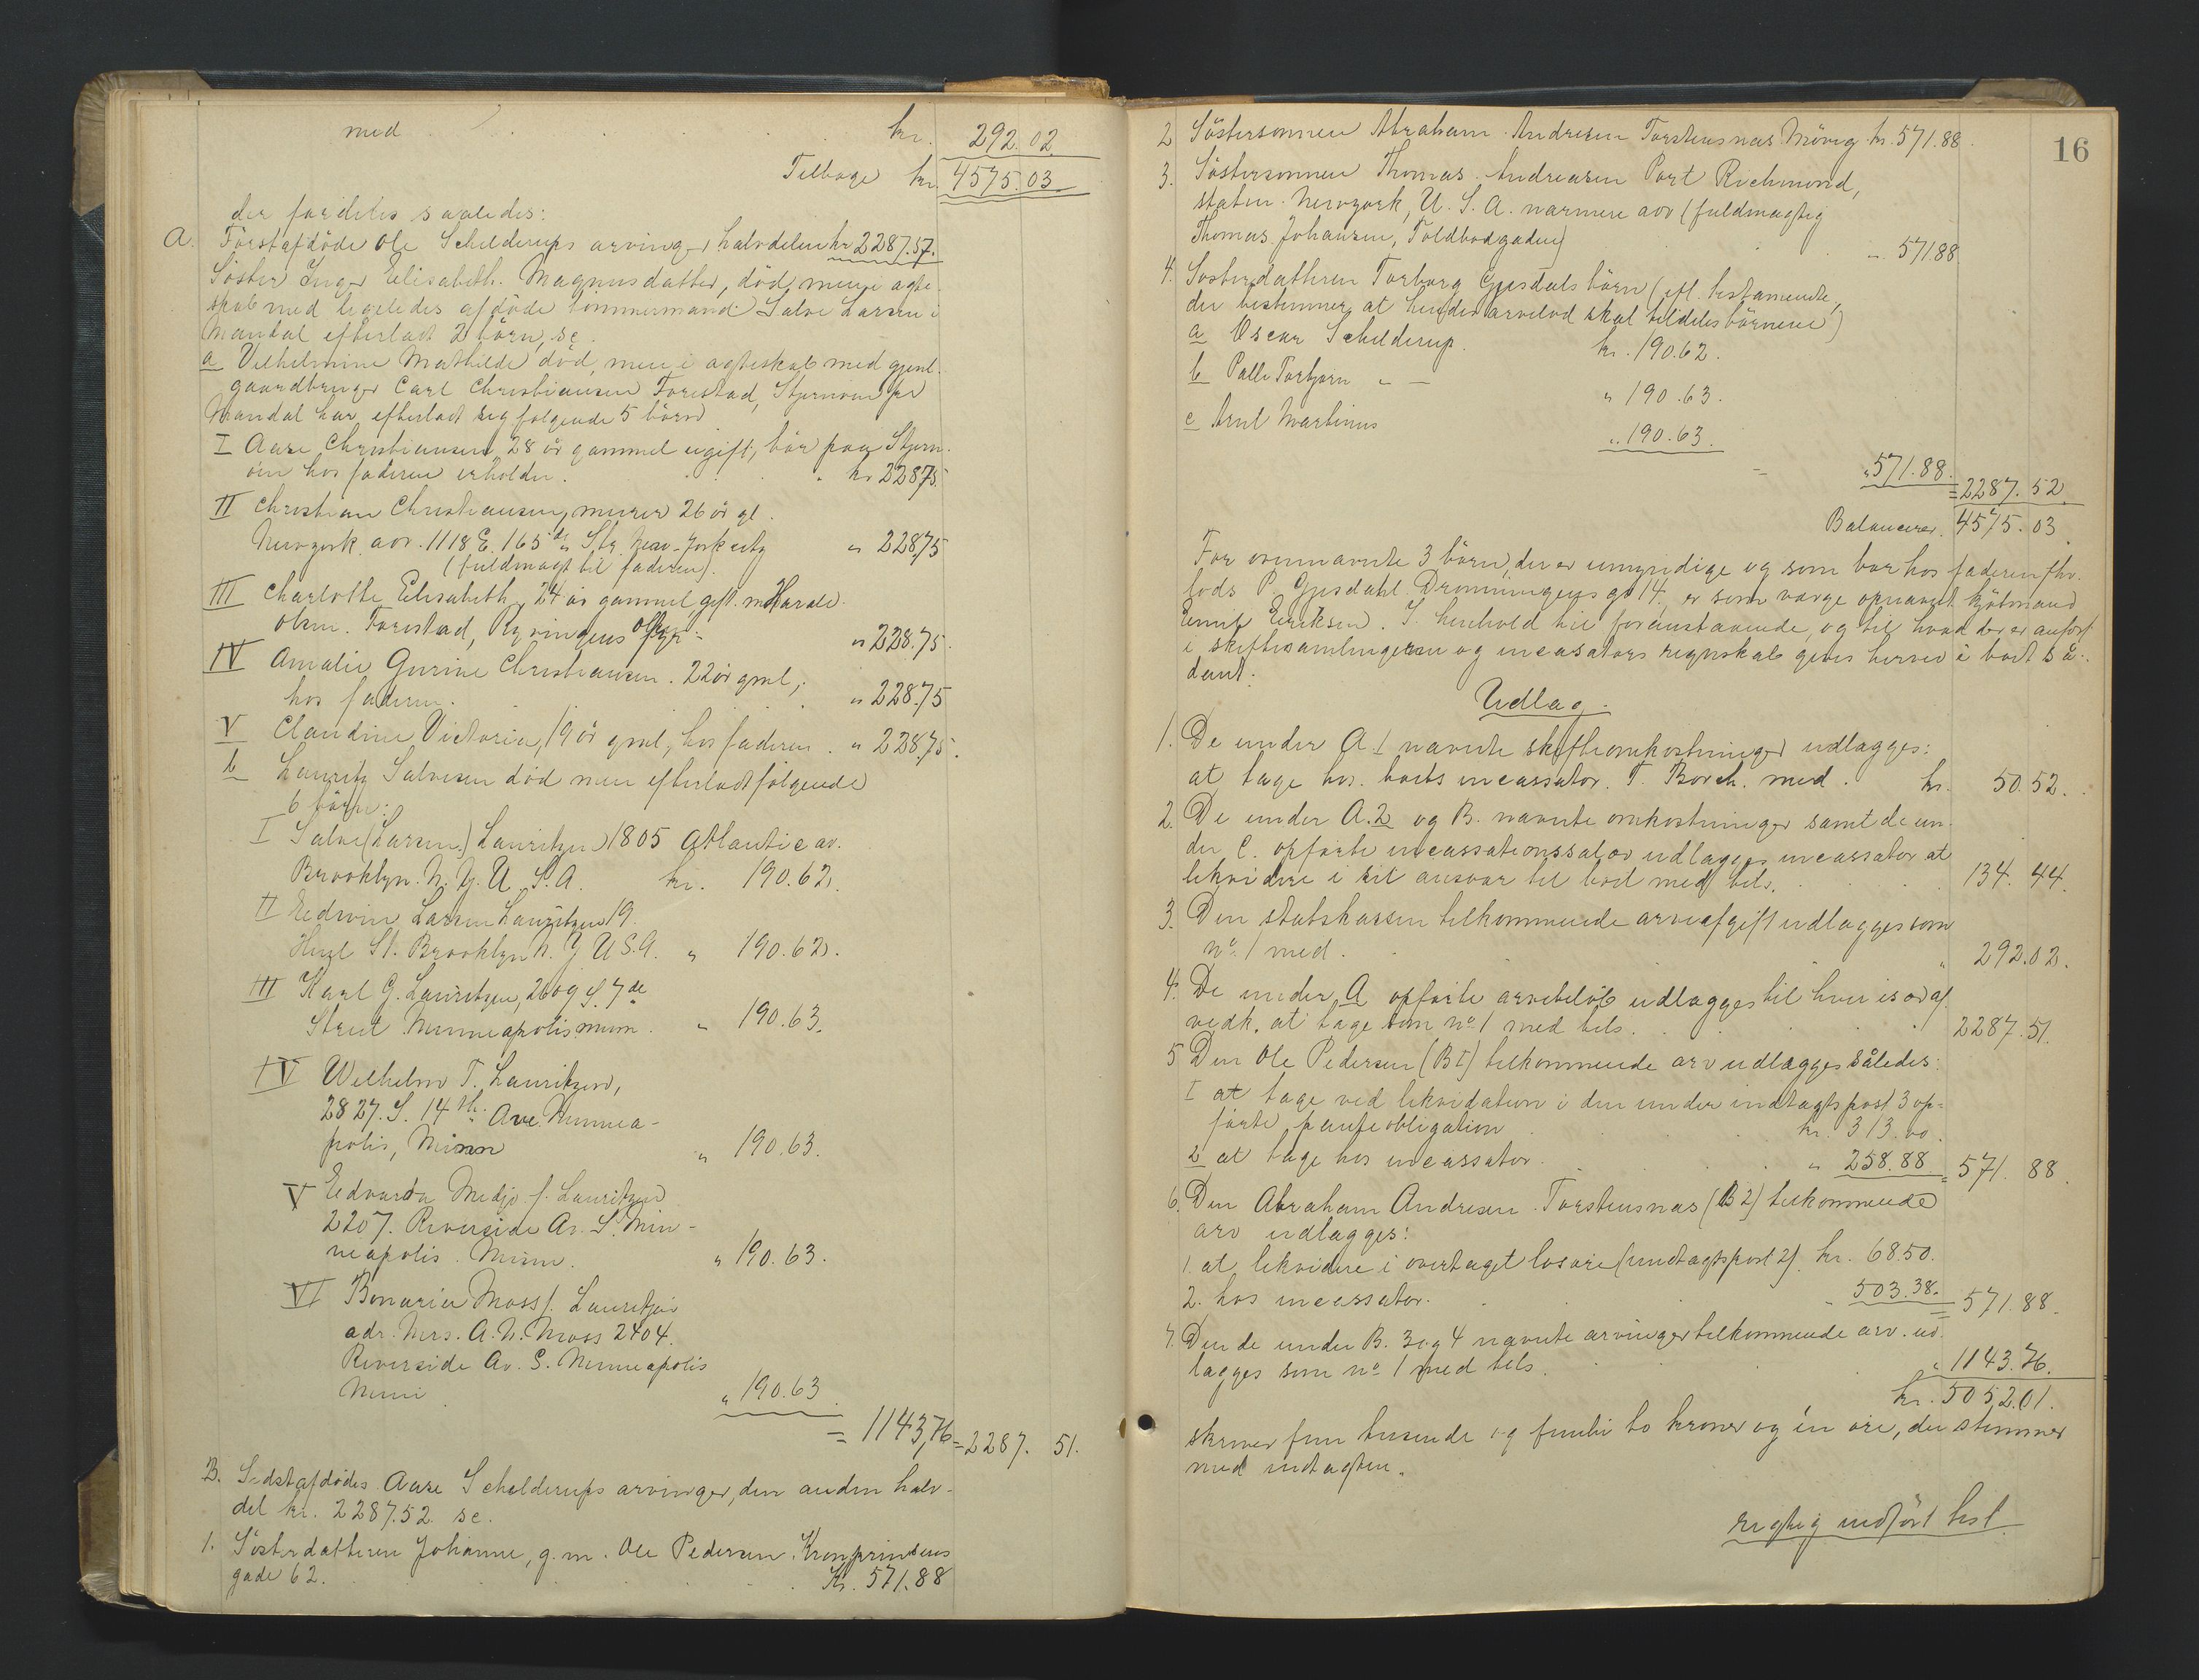 med kr. 292.02
Tilbage kr. 4575.03
der fordeles saaledes:
A. Förstafdöde Ole Schelderups arvinger halvdelen kr 2287.57.
Söster Inger Elisabeth Magnusdatter, död, men i ægte-
skab med ligeledes afdöde tömmermand Salve Larsen i
Mandal efterladt 2 börn, sc.
a Vilhelmine Mathilde död, men i ægteskab med gjenl.
gaardbruger Carl Christiansen Forestad, Stjernøen pr
Mandal har efterladt sig folgende 5 börn
I Aase Christiansen, 28 år gammel ugift, bor paa Stjern-
öen hos faderen erholder. kr 228,75
II Christian Christiansen, murer 26 år gl.
Newyork adr. 1118 E. 165 de Str. New-York city " 228,75
(fuldmagt til faderen).
III Charlotte Elisabeth, 24 år gammel, gift. m Harald
Olsen. Forestad, Ryvingens " 228.75.
IV Amalie Gurine Christiansen. 22 år gml,
hos faderen. " 228.75
V Claudine Victoria, 19 år gml, hos faderen. " 228.75.
b Lauritz Salvesen död men efterladt fölgende
6 börn:
I Salve (Larsen) Lauritzen 1805 Atlantic av.
Brooklyn. N. Y. U. S. A. kr. 190.62.
II Eedwin Larsen Lauritzen 19.
St. Brooklyn N. Y U S.A. " 190.62.
III Karl G. Lauritzen, 2609 S. 7 de
Street Minneapolis Minn. " 190.63.
IV Wilhelm T. Lauritzen,
2827. S. 14 th. Ave Minnea-
polis, Minn " 190.63.
V Eedvarda Medjo f. Lauritzen
2207. Riverside Av. S. Min-
neapolis. Minn. " 190.63.
VI Bonaria Moss f. Lauritzen
adr. Mrs. A. N. Moss 2404.
Riverside Av. S. Minneapolis
Minn. " 190.63.
= 1143,76 = 2287. 51.
B. Sidstafdödes Aase Schelderups arvinger, den anden halv-
del kr. 2287.52. sc.
1. Sösterdatteren Johanne, g. m. Ole Pedersen. Kronprindsens
gade 62. Kr. 571.88
16
2 Söstersonnen Abraham Andresen Torstensnæs Mövig kr. 571.88.
3. Söstersonnen Thomas Andreasen Port Richmond,
staten Newyork, U. S. A. nærmere adr (fuldmægtig
Thomas Johansen, Toldbodgaden) - 571.88
4. Sösterdatteren Torborg Gjesdals börn (efl. testamente,
der bestemmer, at hendes arvelod skal tildeles börnene)
a Oscar Schelderup. kr. 190.62.
b Palle Torbjørn " — " 190.63.
c Arnt Martinus " 190.63.
= " 571.88. = 2287. 52.
Balancerer. 4575. 03.
For ovennævnte 3 börn, der er umyndige og som bor hos faderen fhv.
lods P. Gjesdahl Dronningens gd 14. er som værge opnævnt kjöbmand
Eriksen. I henhold til foranstaaende, og til hvad der er anført
i skiftesamlingerne og incassators regnskab gives herved i boet så-
dant:
Udlæg.
1. De under A 1 nævnte skifteomkostninger udlægges:
at tage hos boets incassator. T. Borch. med. kr. 50.52.
2. De under A. 2 og B. nævnte omkostninger samt de un-
der C. opförte incassationssalær udlægges incassator at
likvidere i sit ansvar til bod med bels. 134. 44.
3. Den statskassen tilkommende arveafgift udlægges som
no. 1 med. " 292.02.
4. De under A opförte arvebelöb udlægges til hver især af
vedk. at tage som no. 1 med bels. 2287. 51.
5 Den Ole Pedersen (B1) tilkommende arv udlægges således:
1 at tage ved likvidation i den under indtægtspost 3 op-
förte panteobligation kr. 313.00.
2 at tage hos incassator. " 258.88 = 571. 88.
6. Den Abraham Andresen Torstensnæs (B 2) tilkommende
arv udlægges:
1. at likvidere i overtaget lösöre (indtægtspost 2). kr. 68.50.
2. hos incassator. " 503.38. = 571.88.
7. Den de under B. 3 og 4 nævnte arvinger tilkommende arv. ud-
lægges som no 1 med bels. " 1143.76.
kr. 5052.01.
skriver fem tusinde og femti to kroner og én öre, der stemmer
med indtægten.
rigtig indfört test